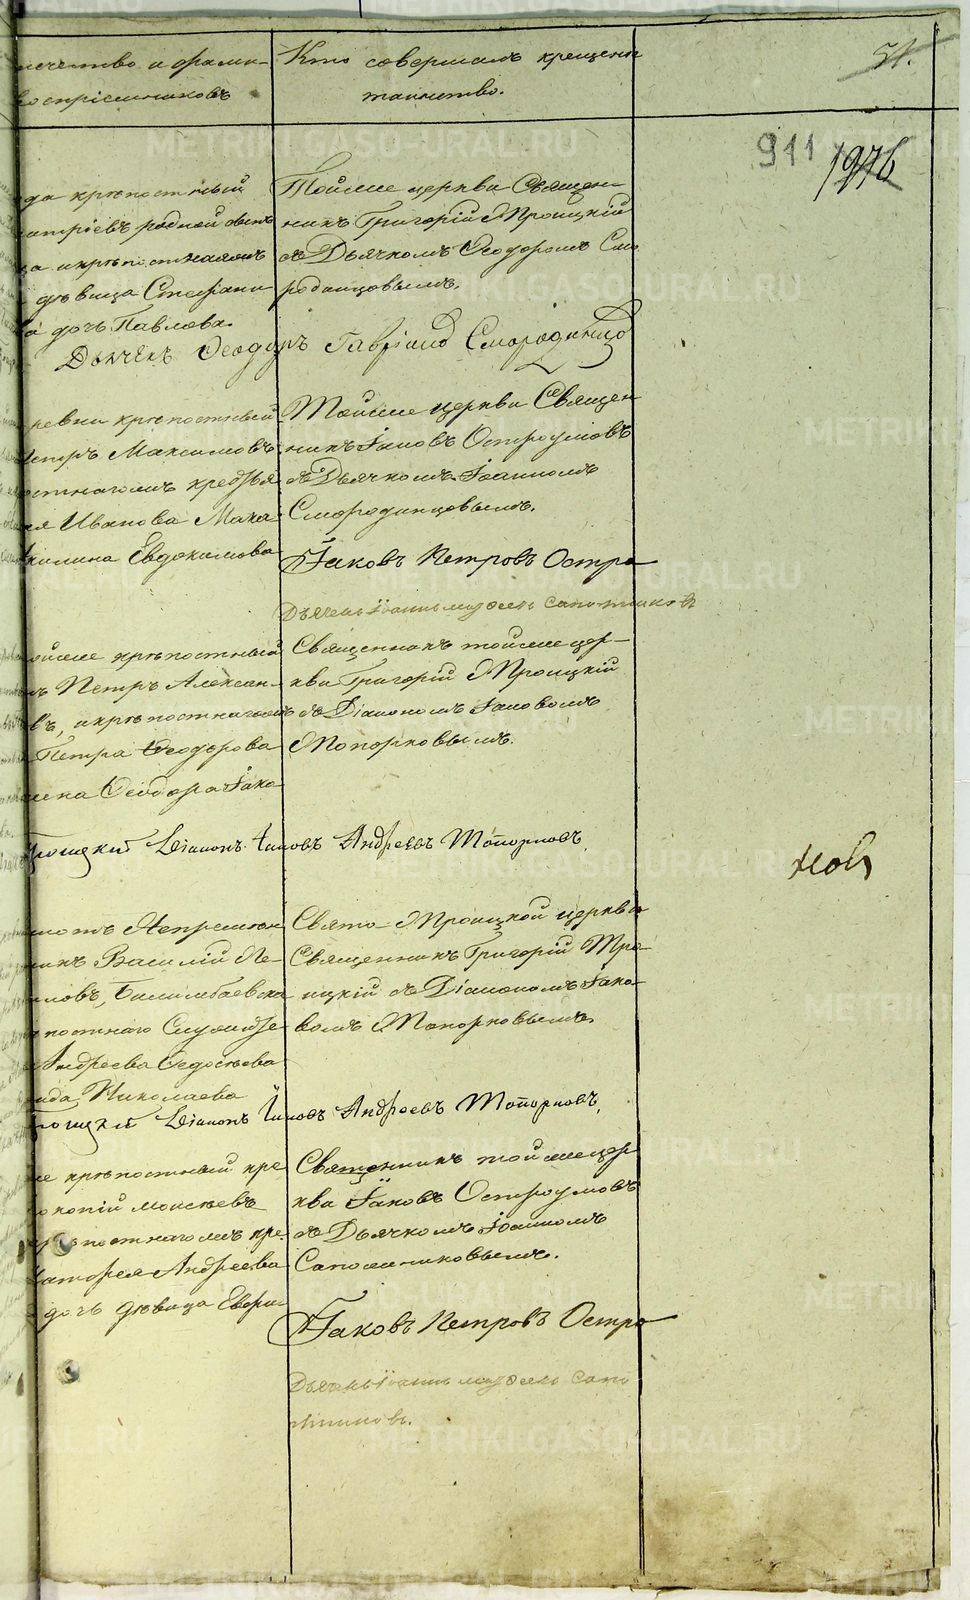 отчество и фами-
воспріемниковъ
Кто совершалъ крещенія
таинство.
51.
911
1976
да крѣпостный
митріевъ родной сынъ
ца и крѣпостнаго
дѣвица Стефани
дочь Павлова.
Тойже церкви Священ-
никъ Григорій Троицкій
съ Дьячкомъ Ѳеодоромъ Смо
родинцовымъ.
Дьячекъ Ѳеодоръ Гавріиловъ Смородинцо
ревни крѣпостный
Петръ Максимовъ
Иванова Мака
Акилина Евдокимова
Тойже церкви Священ
никъ Іаковъ Остроумовъ
съ Дьячкомъ Іоанномъ
Смородинцовымъ.
Іаковъ Петровъ Остро
Дьячекъ Іоаннъ Сапожниковъ
тойже крѣпостный
Петръ Алексан-
въ, и крѣпостнаго
Петра Ѳеодорова
жена Ѳеодора Іако
Священникъ тойже цер-
кви Григорій Троицкій
съ Діакономъ Іаковомъ
Топорковымъ.
Троицкій Діаконъ Іаковъ Андреевъ Топорковъ.
Василій Ле-
Билимбаевска
постнаго Служите
Андреева Ѳедосѣева
Николаева
Свято-Троицкой церкви
Священникъ Григорій Тро-
ицкій съ Діакономъ Іако-
вомъ Топорковымъ.
Троицкій Діаконъ Іаковъ Андреевъ Топорковъ,
же крѣпостный кре
копій Моисѣевъ
крѣпостнаго кре-
Андреева
дочь дѣвица Евфи-
Священникъ тойже цер
кви Іаковъ Остроумовъ
съ Дьячкомъ Іоанномъ
Сапожниковымъ.
Іаковъ Петровъ Остро
Дьячекъ Іоаннъ Сапо
жниковъ.
METRIKI.GASO-URAL.RU